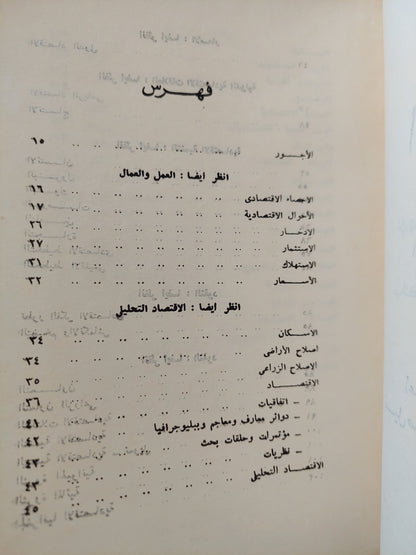 فهرس
الأجور .. .. .. .. .. .. ١٥
انظر ايضا : العمل والعمال
الاحصاء الاقتصادى .. .. .. .. .. .. ١٦
الأحوال الاقتصادية .. .. .. .. .. .. ١٧
الادخار .. .. .. .. .. .. ٢٦
الاستثمار .. .. .. .. .. .. ٢٧
الاستهلاك .. .. .. .. .. .. ٣١
الأسعار .. .. .. .. .. .. ٣٢
انظر ايضا : الاقتصاد التحليلى
الاسكان .. .. .. .. .. .. ٣٤
اصلاح الأراضى .. .. .. .. .. .. ٣٤
الاصلاح الزراعى .. .. .. .. .. .. ٣٥
الاقتصاد .. .. .. .. .. .. ٣٦
– اتفاقيات .. .. .. .. .. ٤١
– دوائر معارف ومعاجم وببليوجرافيا .. .. ٤٢
– مؤتمرات وحلقات بحث .. .. .. ٤٣
– نظريات .. .. .. .. .. ٤٣
الاقتصاد التحليلى .. .. .. .. .. ٤٥